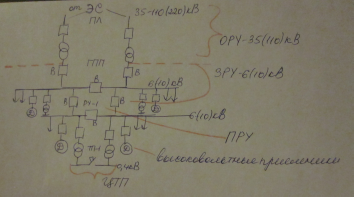 от ЭС 35-110(220)кВ
ПЛ
ОРУ-35(110)кВ
ГПП
В В
ЗРУ-6(10)кВ
В
6(10)кВ
В РУ-1 В
6(10)кВ
ПРУ
высоковольтные приемники
0,4кВ
ЦТП